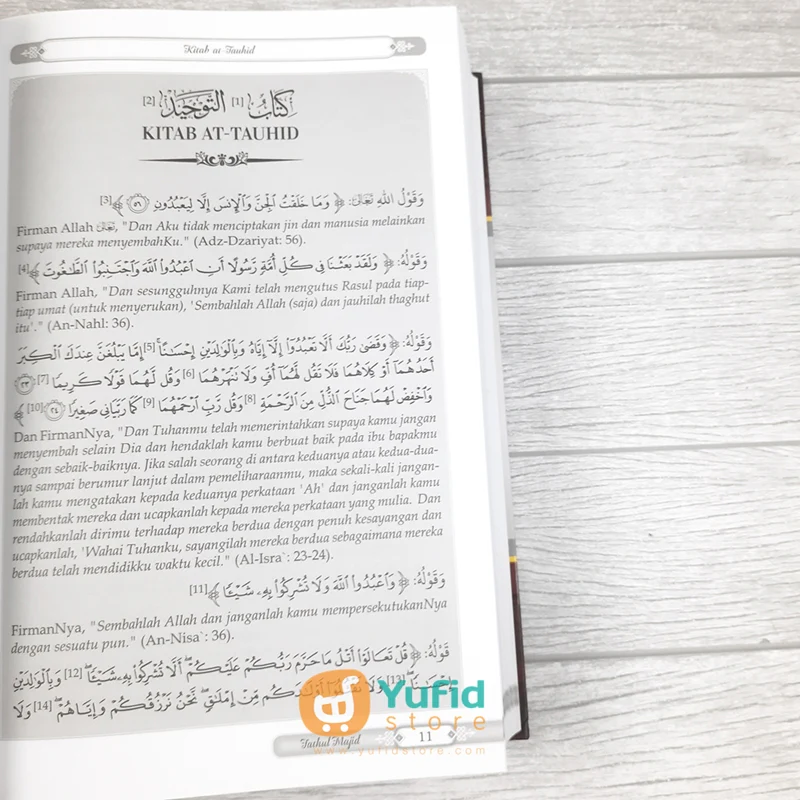 Kitab at-Tauhid
كِتَابُ [1] التَّوْحِيْدِ [2]
KITAB AT-TAUHID
وَقَوْلُ اللهِ تَعَالَى: ﴿ وَمَا خَلَقْتُ ٱلْجِنَّ وَٱلْإِنسَ إِلَّا لِيَعْبُدُونِ ۝٥٦ ﴾[3]
Firman Allah تَعَالَى, "Dan Aku tidak menciptakan jin dan manusia melainkan
supaya mereka menyembahKu." (Adz-Dzariyat: 56).
وَقَوْلُهُ: ﴿ وَلَقَدْ بَعَثْنَا فِى كُلِّ أُمَّةٍ رَّسُولًا أَنِ ٱعْبُدُوا۟ ٱللَّهَ وَٱجْتَنِبُوا۟ ٱلطَّـٰغُوتَ ﴾[4]
Firman Allah, "Dan sesungguhnya Kami telah mengutus Rasul pada tiap-
tiap umat (untuk menyerukan), 'Sembahlah Allah (saja) dan jauhilah thaghut
itu'." (An-Nahl: 36).
وَقَوْلُهُ: ﴿ وَقَضَىٰ رَبُّكَ أَلَّا تَعْبُدُوٓا۟ إِلَّآ إِيَّاهُ وَبِٱلْوَٰلِدَيْنِ إِحْسَـٰنًا ۚ [5] إِمَّا يَبْلُغَنَّ عِندَكَ ٱلْكِبَرَ
أَحَدُهُمَآ أَوْ كِلَاهُمَا فَلَا تَقُل لَّهُمَآ أُفٍّ وَلَا نَنْهَرْهُمَا [6] وَقُل لَّهُمَا قَوْلًا كَرِيمًا [7] ۝٢٣
وَٱخْفِضْ لَهُمَا جَنَاحَ ٱلذُّلِّ مِنَ ٱلرَّحْمَةِ [8] وَقُل رَّبِّ ٱرْحَمْهُمَا [9] كَمَا رَبَّيَانِى صَغِيرًا ۝٢٤ [10] ﴾
Dan FirmanNya, "Dan Tuhanmu telah memerintahkan supaya kamu jangan
menyembah selain Dia dan hendaklah kamu berbuat baik pada ibu bapakmu
dengan sebaik-baiknya. Jika salah seorang di antara keduanya atau kedua-dua-
nya sampai berumur lanjut dalam pemeliharaanmu, maka sekali-kali jangan-
lah kamu mengatakan kepada keduanya perkataan 'Ah' dan janganlah kamu
membentak mereka dan ucapkanlah kepada mereka perkataan yang mulia. Dan
rendahkanlah dirimu terhadap mereka berdua dengan penuh kesayangan dan
ucapkanlah, 'Wahai Tuhanku, sayangilah mereka berdua sebagaimana mereka
berdua telah mendidikku waktu kecil." (Al-Isra`: 23-24).
وَقَوْلُهُ: ﴿ وَٱعْبُدُوا۟ ٱللَّهَ وَلَا تُشْرِكُوا۟ بِهِۦ شَيْـًٔا ﴾[11]
FirmanNya, "Sembahlah Allah dan janganlah kamu mempersekutukanNya
dengan sesuatu pun." (An-Nisa`: 36).
قَوْلُهُ: ﴿ قُلْ تَعَالَوْا۟ أَتْلُ مَا حَرَّمَ رَبُّكُمْ عَلَيْكُمْ ۖ أَلَّا تُشْرِكُوا۟ بِهِۦ شَيْـًٔا ۖ [12] وَبِٱلْوَٰلِدَيْنِ
إِحْسَـٰنًا ۖ [13] وَلَا تَقْتُلُوٓا۟ أَوْلَـٰدَكُم مِّنْ إِمْلَـٰقٍ ۖ نَّحْنُ نَرْزُقُكُمْ وَإِيَّاهُمْ ۖ [14] وَلَا
Yufid
store
Fathul Majid 11
www.yufidstore.com